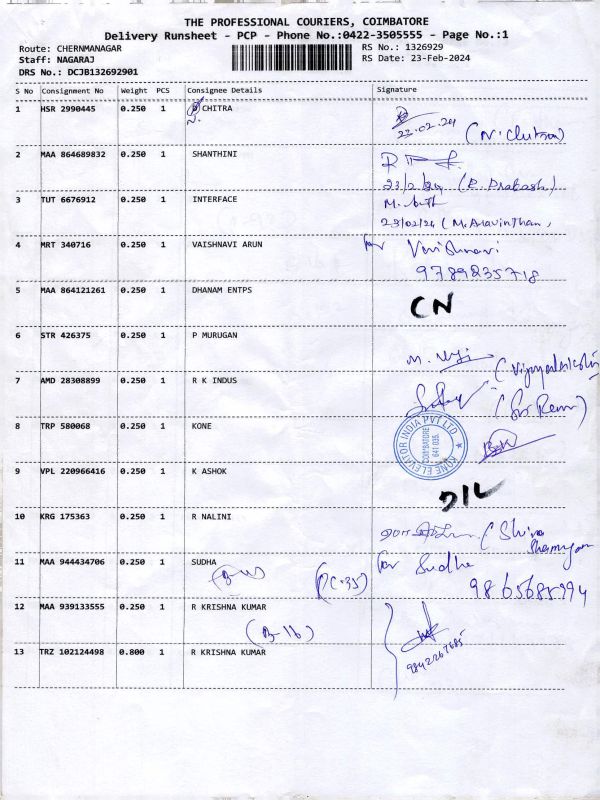 THE PROFESSIONAL COURIERS, COIMBATORE
Delivery Runsheet - PCP - Phone No.:0422-3505555 - Page No.:1
Route: CHERNMANAGAR
RS No.: 1326929
Staff: NAGARAJ
RS Date: 23-Feb-2024
DRS No.: DCJB132692901
S No Consignment No Weight PCS Consignee Details Signature
1 HSR 2990445 0.250 1 CHITRA
23.02.24
2 MAA 864689832 0.250 1 SHANTHINI
23/2/24 (R. Prakash)
3 TUT 6676912 0.250 1 INTERFACE
23/02/24 (M. Aravinthan,
4 MRT 340716 0.250 1 VAISHNAVI ARUN for Vaishnavi
9789235718
5 MAA 864121261 0.250 1 DHANAM ENTPS CN
6 STR 426375 0.250 1 P MURUGAN
7 AMD 28308899 0.250 1 R K INDUS
8 TRP 580068 0.250 1 KONE
KONE ELEVATOR INDIA PVT LTD
COIMBATORE
641 035
9 VPL 220966416 0.250 1 K ASHOK D/L
10 KRG 175363 0.250 1 R NALINI
11 MAA 944434706 0.250 1 SUDHA for Sudha
(PC-35) 9865685994
12 MAA 939133555 0.250 1 R KRISHNA KUMAR
(B-16)
9842267685
13 TRZ 102124498 0.800 1 R KRISHNA KUMAR